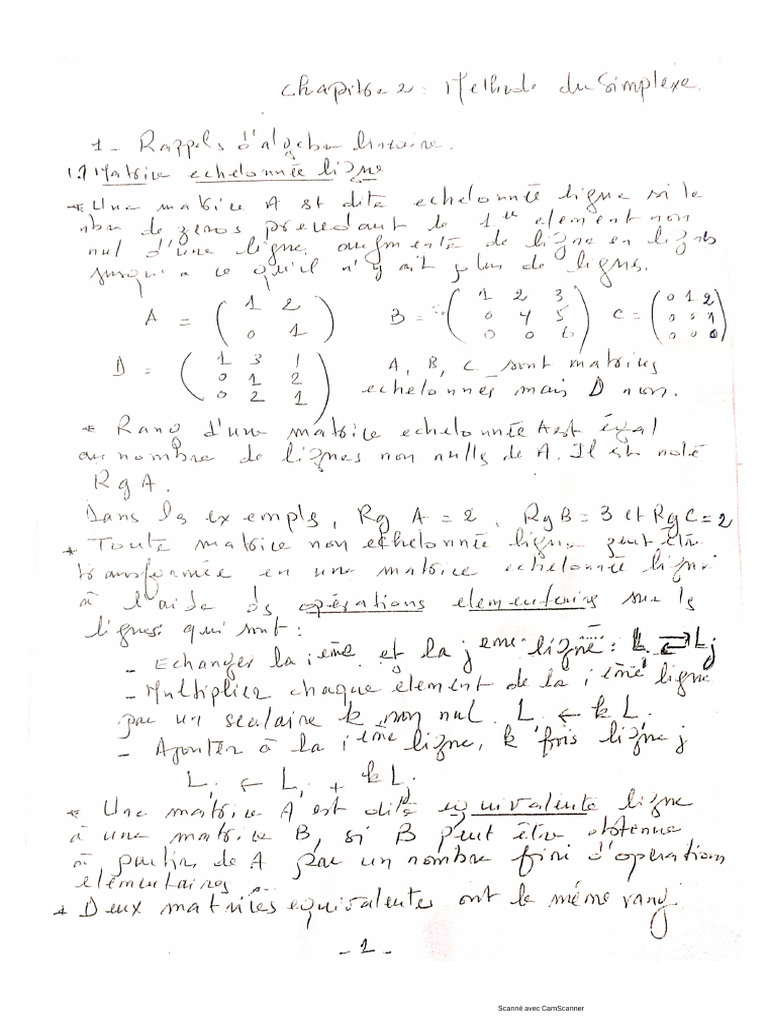 Chapitre 2 : Methode du Simplexe.
1 - Rappels d'algebre lineaire.
1.1 Matrice echelonnée ligne
* Une matrice A est dite echelonnée ligne si le
nbre de zeros precedant le 1er element non
nul d'une ligne augmente de ligne en ligne
jusqu'a ce qu'il n'y ait plus de lignes.
A = ( 1 2 ; 0 1 ) B = ( 1 2 3 ; 0 4 5 ; 0 0 6 ) C = ( 0 1 2 ; 0 0 1 ; 0 0 0 )
D = ( 1 3 1 ; 0 1 2 ; 0 2 1 ) A, B, C sont matrices
echelonnes mais D non.
* Rang d'une matrice echelonnée A est égal
au nombre de lignes non nulles de A. Il est noté
Rg A.
Dans les exemples, Rg A = 2, Rg B = 3 et Rg C = 2
* Toute matrice non echelonnée ligne peut être
transformée en une matrice echelonnée ligne
à l'aide des opérations elementaires sur les
lignes qui sont :
- Echanger la ieme et la jeme ligne : Li ⇄ Lj
- Multiplier chaque element de la ieme ligne
par un scalaire k non nul. Li ← k Li
- Ajouter à la ieme ligne, k fois ligne j
Li ← Li + k Lj
* Une matrice A est dite equivalente ligne
à une matrice B, si B peut être obtenue
à partir de A par un nombre fini d'operations
elementaires.
* Deux matrices equivalentes ont le même rang.
- 1 -
Scanné avec CamScanner